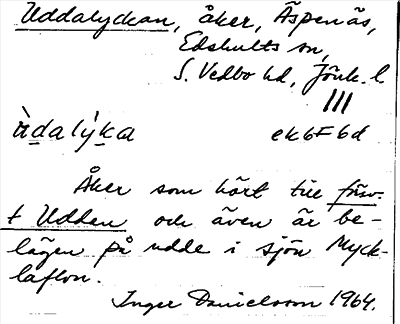 Uddalyckan, åker, Äspenäs,
Edshults sn,
S. Vedbo hd, Jönk. l
III
ùdalýka ek6F6d
Åker som hört till försv.
t Udden och även är be-
lägen på udde i sjön Myck-
laflon.
Inger Danielsson 1964.